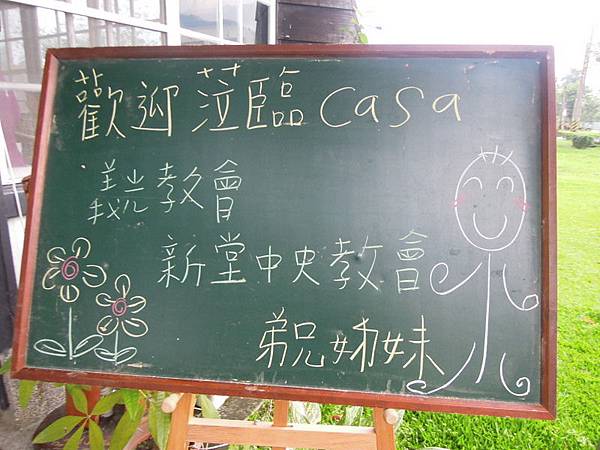 歡迎 蒞臨 casa
義光教會
新堂中央教會
弟兄姊妹